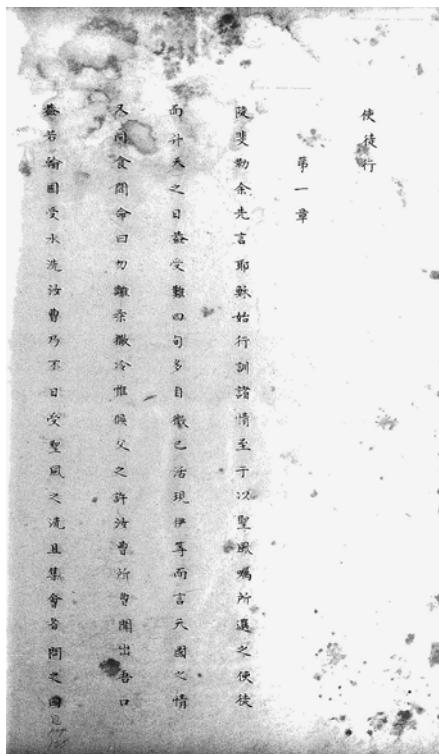 使徒行
第一章
陡斐勒余先言耶穌始行訓諸情至于以聖風囑所選之使徒
而升天之日蓋受難四旬多自徵己活現伊等而言天國之情
又同食間命曰勿離柔撒冷惟候父之許汝曹所曹聞出吾口
蓋若翰固受水洗汝曹乃不日受聖風之洗且集會者問之曰